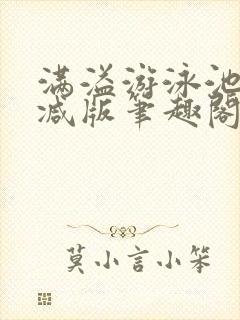 满溢游泳池
减版笔趣阁
莫小言小笨